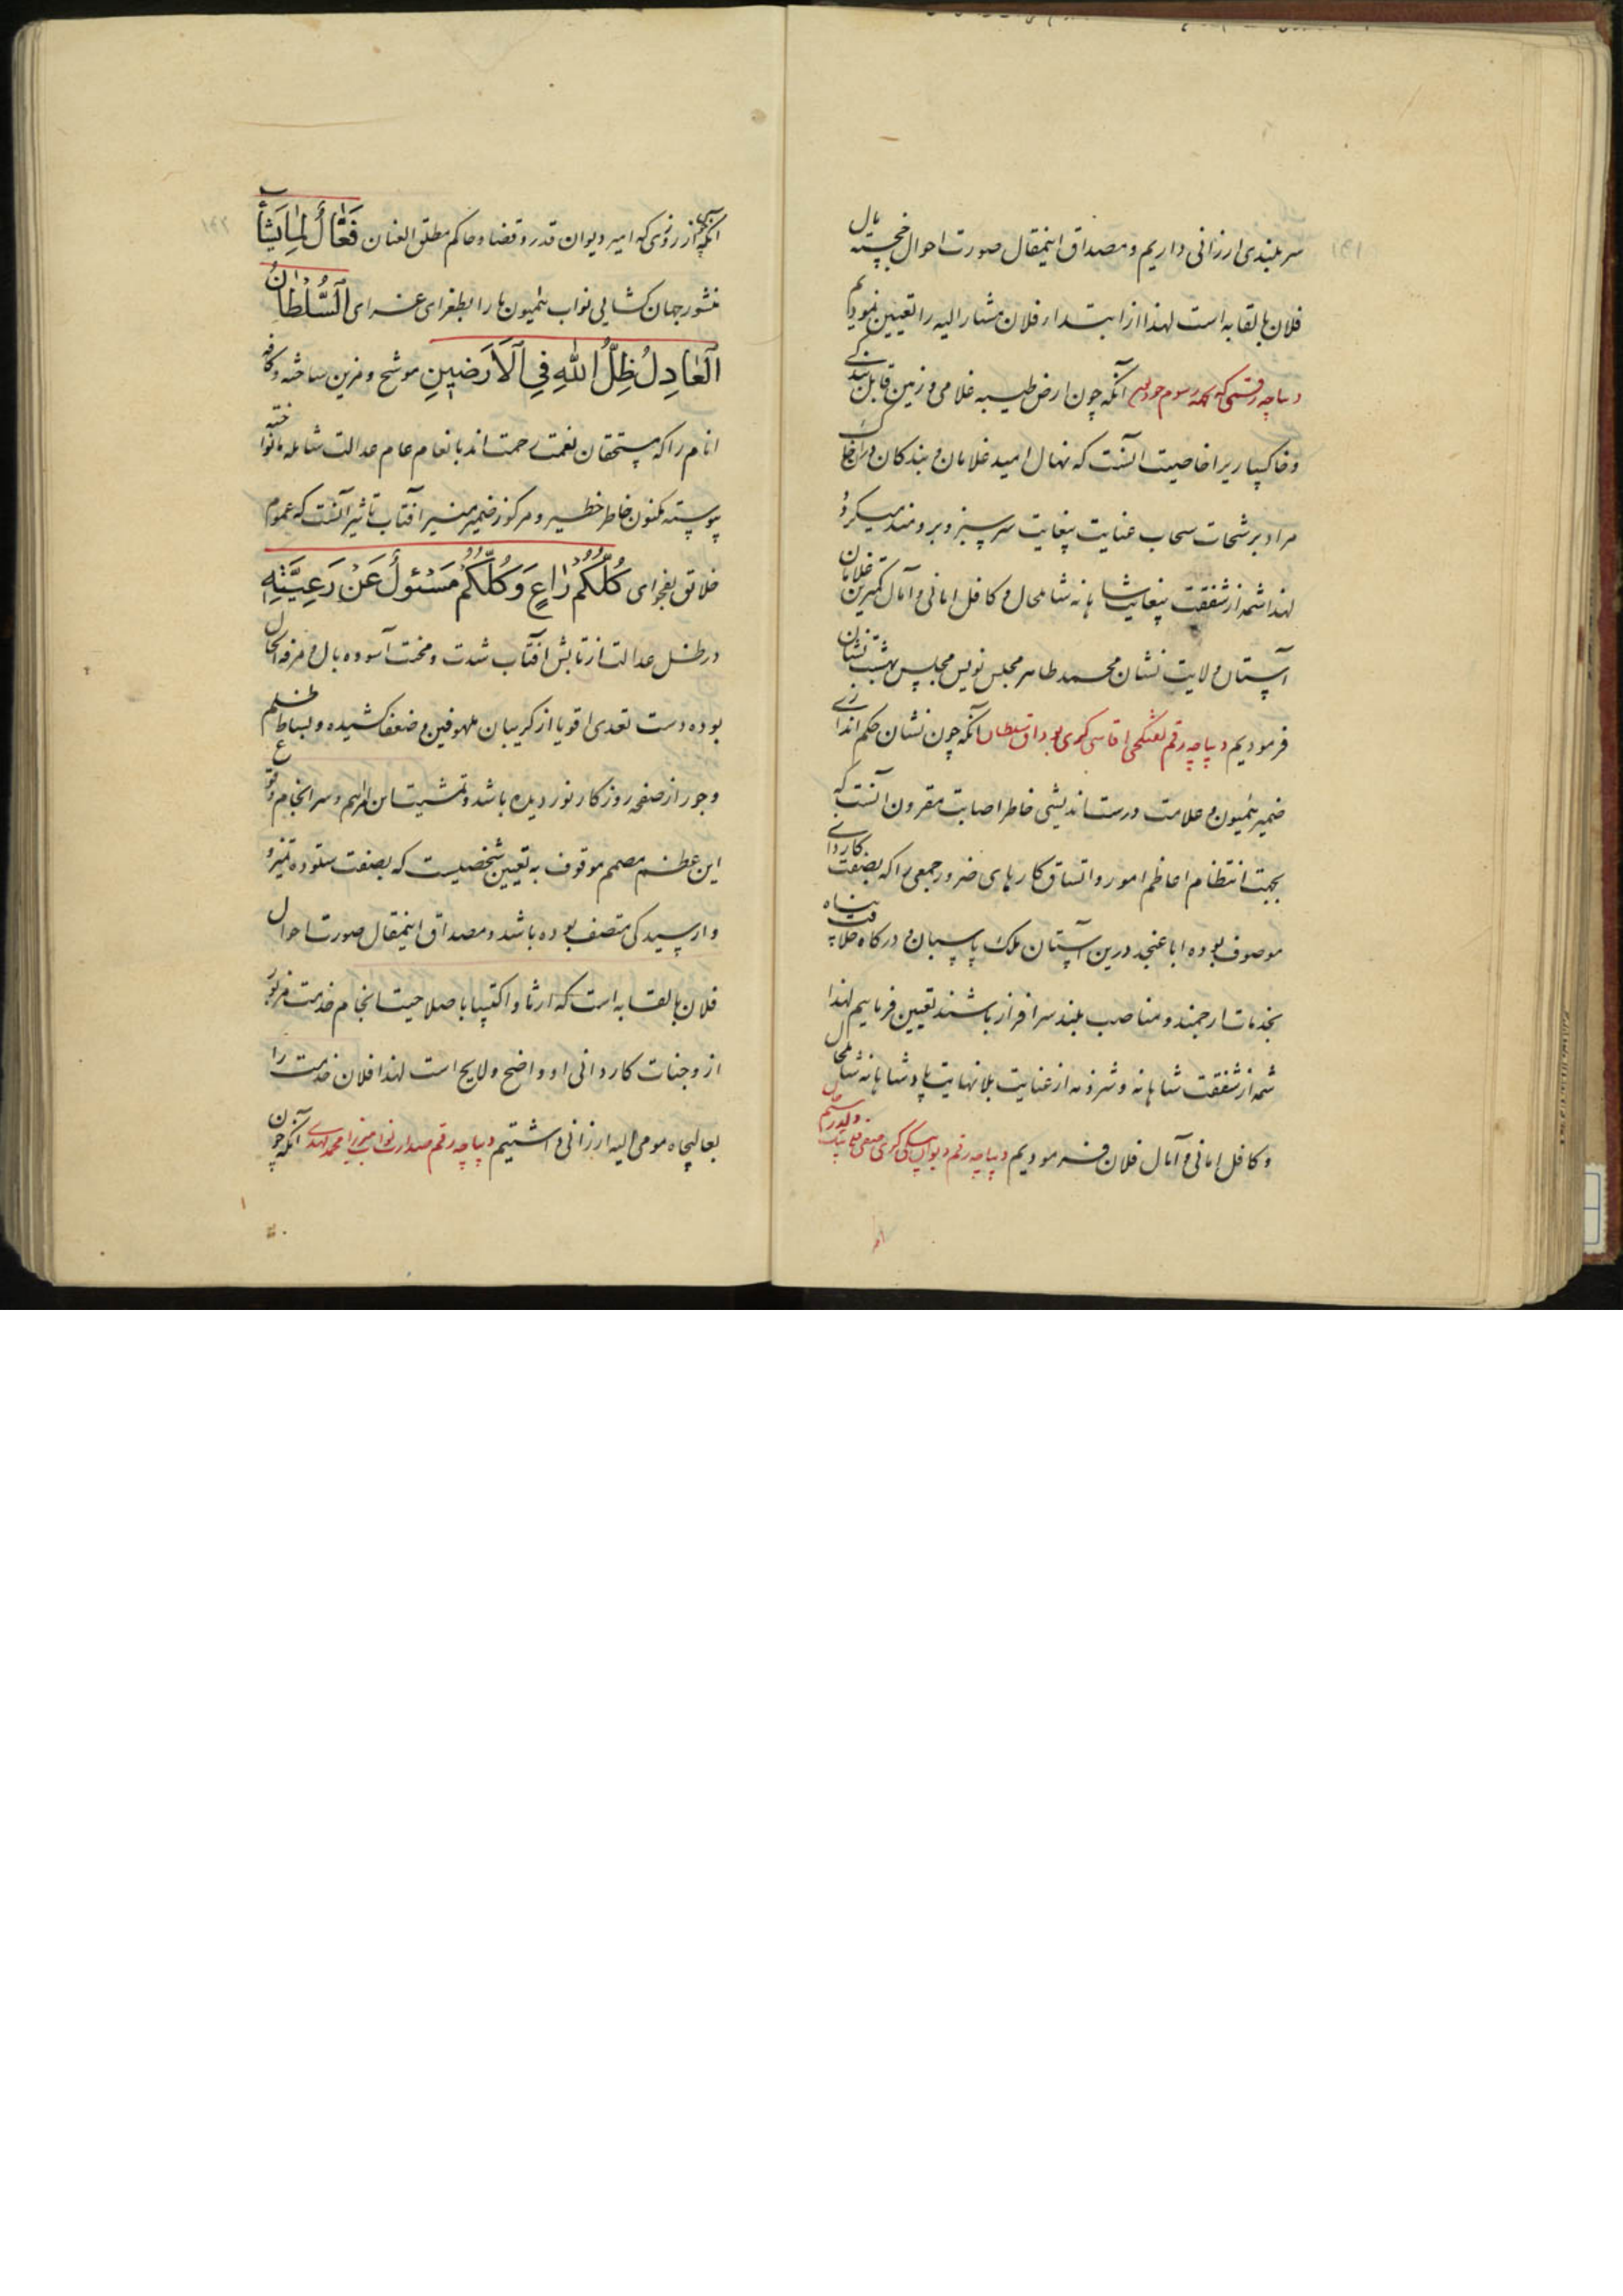 سربلندی ارزانی داریم و مصداق اینمقال صورت احوال خجسته بال
فلان بالقابه است لهذا از ابتدا فلان مشارالیه را تعیین نمودیم
دیباچه رقمی که بجهة رسوم خود آنکه چون ارض طیبه غلامی و زمین قابل بندگی
و خاکساریرا خاصیت آنست که نهال امید غلامان و بندگان
مراد برشحات سحاب عنایت بیغایت سرسبز و برومند میگردد
لهذا شمه از شفقت بیغایت شاهانه شامل حال و کافل امانی و آمال کمترین غلامان
آستان ولایت نشان محمد طاهر مجلس نویس مجلس بهشت نشان
فرمودیم دیباچه رقم تفنگچی آقاسی گری بوداق سلطان آنکه چون نشان حکم اندازی
ضمیر همیون و علامت درست اندیشی خاطر اصابت مقرون آنست که
بجهت انتظام اعاظم امور و اتساق کارهای ضرور جمعی را که بصفت کاردانی
موصوف بوده اباعنجد درین آستان ملک پاسبان و درگاه خلافت پناه
بخدمات ارجمند و مناصب بلند سرافراز باشند تعیین فرماییم لهذا
شمه از شفقت شاهانه و شرذمه از عنایت بلانهایت پادشاهانه شامل حال
و کافل امانی و آمال فلان فرمودیم دیباچه رقم دیوان بیگی گری صفی قلی بیک ولد رستم خان
آنکه چون از روزی که امیر دیوان قدر و قضا و حاکم مطلق العنان فَعَّالُ لِمَا یَشَاءُ
منشور جهان گشایی نواب همیون ما را بطغرای غرای اَلسُّلْطَانُ
اَلْعَادِلُ ظِلُّ اللهِ فِی اَلْاَرَضِینِ موشح و مزین ساخته و کافه
انام را که مستحقان نعمت رحمت اند بانعام عام عدالت شامله ما نواخته
پیوسته مکنون خاطر خطیر و مرکوز ضمیر منیر آفتاب تاثیر آنست که عموم
خلائق بفحوای کُلُّکُمْ رَاعٍ وَ کُلُّکُمْ مَسْئُولٌ عَنْ رَعِیَّتِهِ
در ظل عدالت از تابش آفتاب شدت و محنت آسوده بال و مرفه الحال
بوده دست تعدی اقویا از گریبان ملهوفین و ضعفا کشیده و بساط ظلم
و جور از صفحه روزگار نوردیده باشد و تمشیت این امر اهم و سرانجام وقوع
این عظم مصمم موقوف به تعیین شخصیست که بصفت ستوده تمیز و
وارسیدگی متصف بوده باشد و مصداق اینمقال صورت احوال
فلان بالقابه است که ارثا و اکتسابا صلاحیت انجام خدمت مزبور
از وجنات کاردانی او واضح و لایح است لهذا فلان خدمت را
بعالیجاه مومی الیه ارزانی داشتیم دیباچه رقم صدارت نواب میرزا محمد مهدی آنکه چون